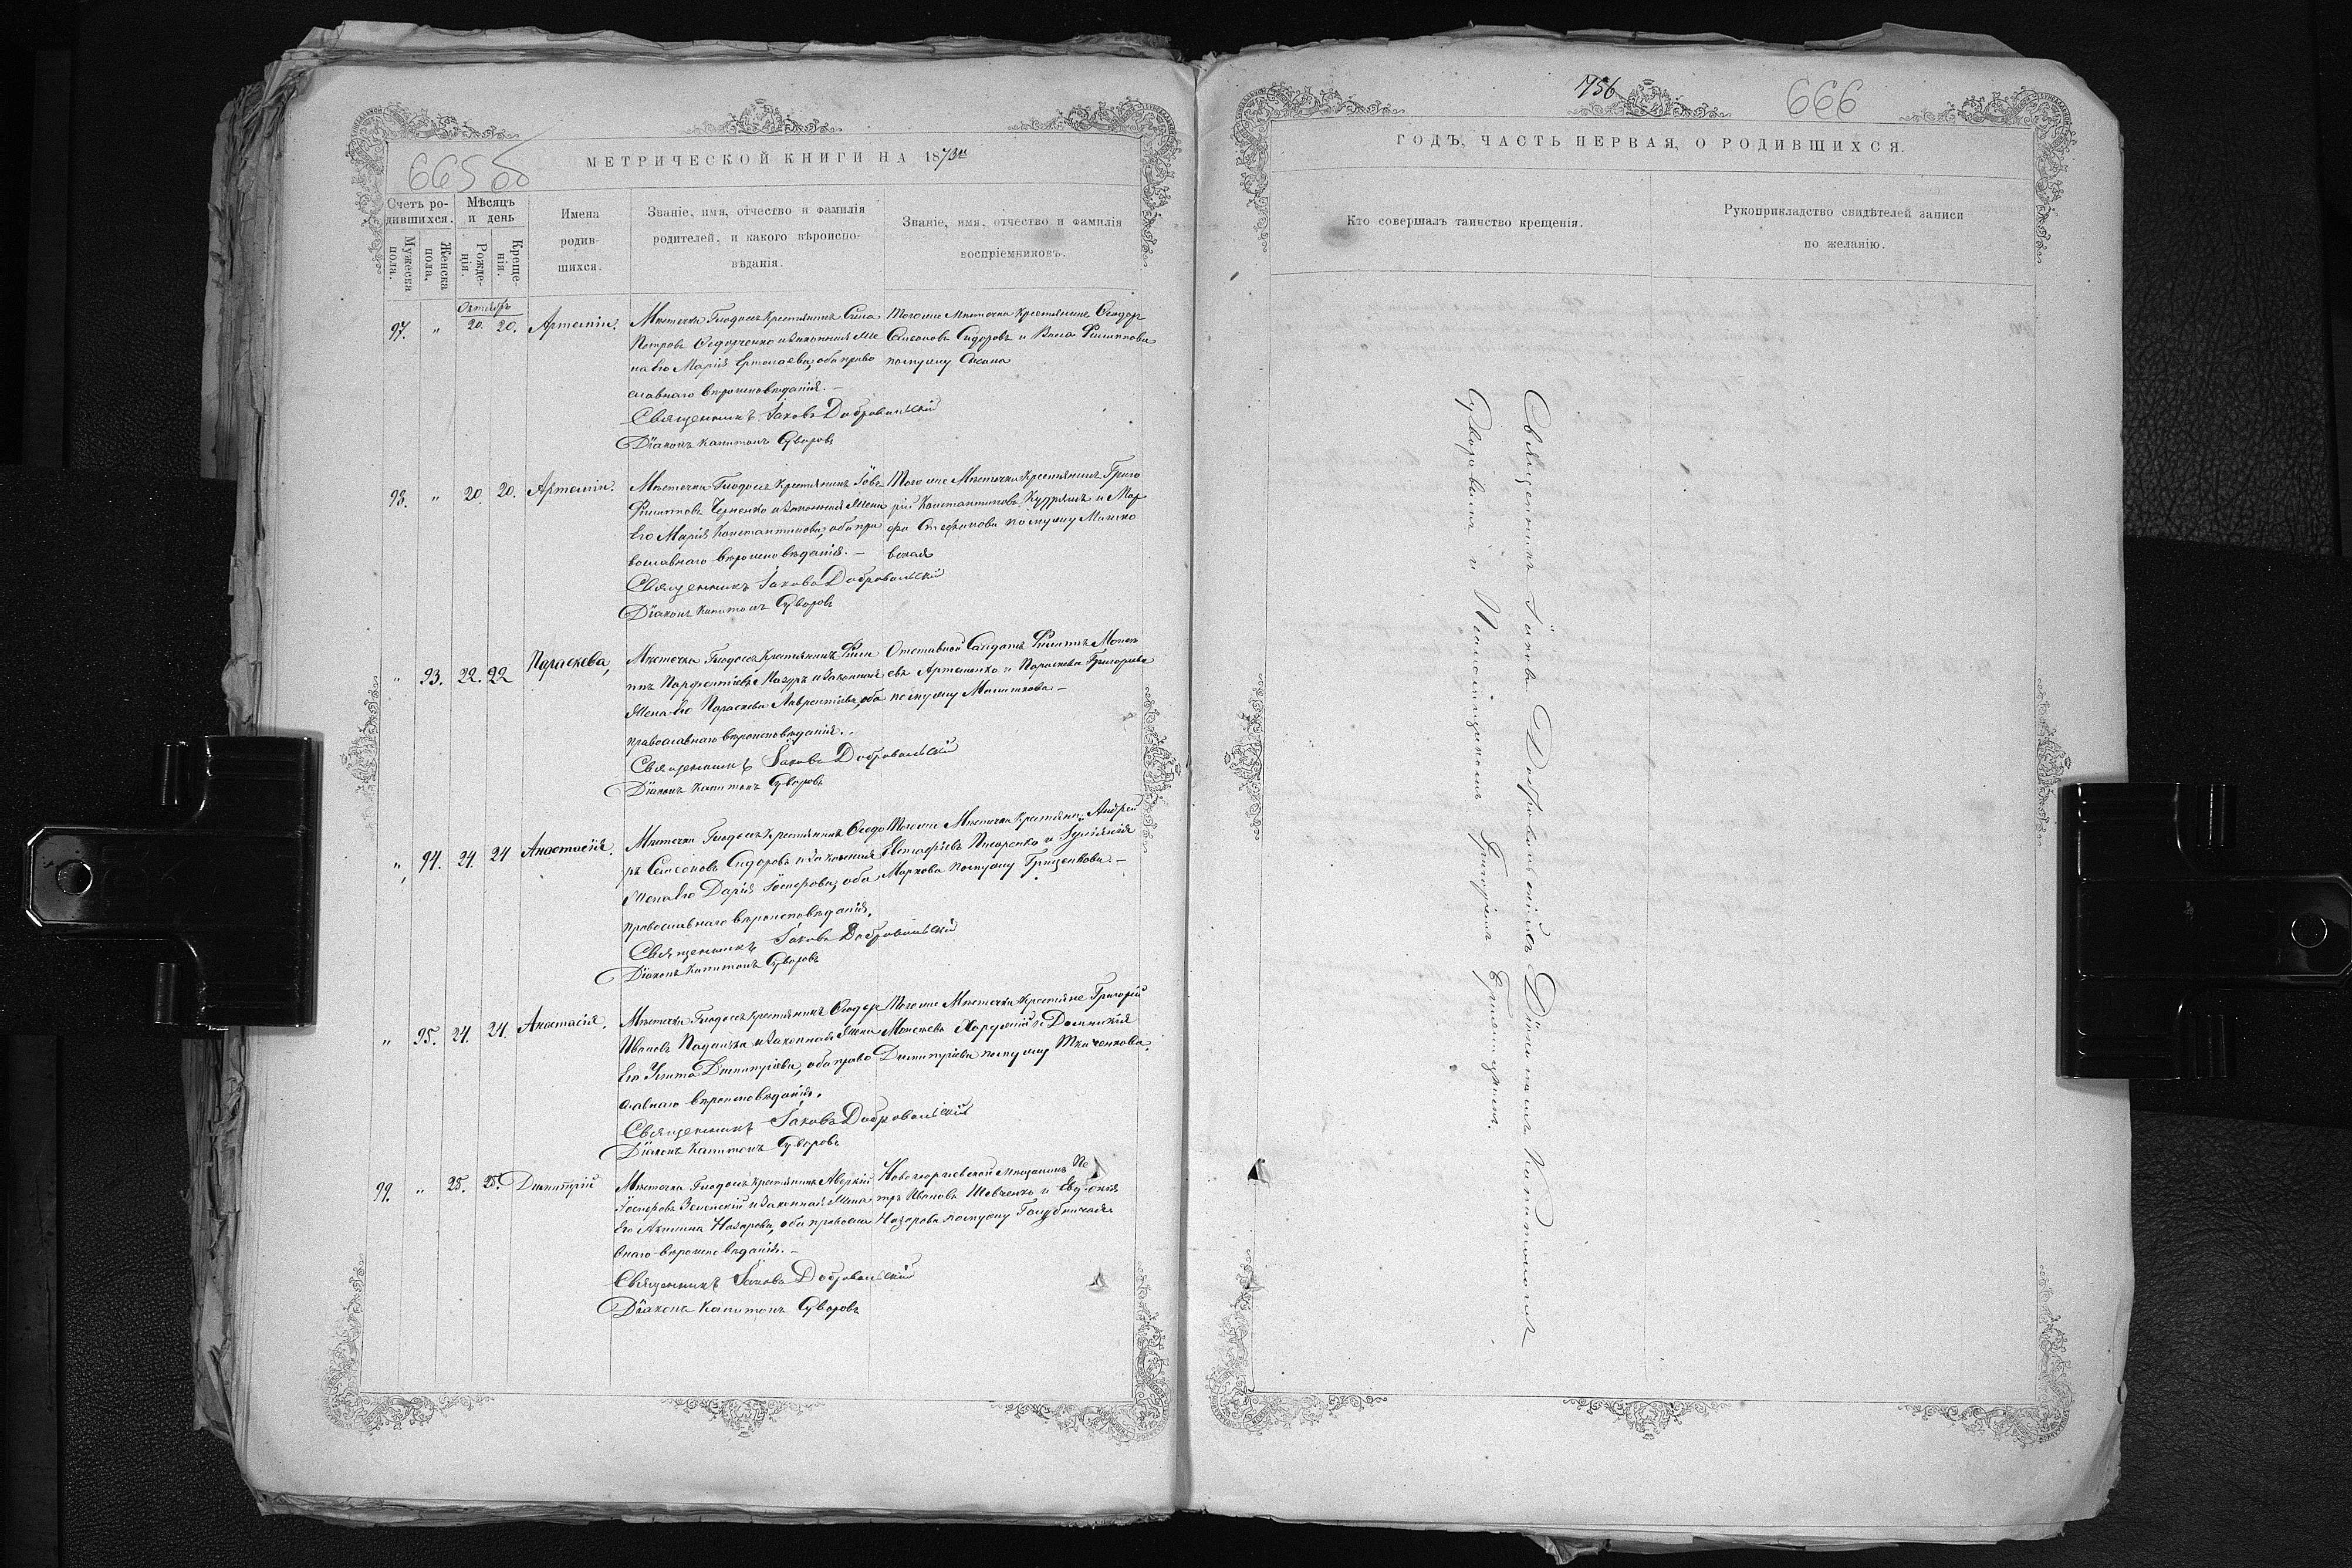 665 об
МЕТРИЧЕСКОЙ КНИГИ НА 1873й
Счетъ ро-
дившихся.
Мужеска
пола.
Женска
пола.
Мѣсяцъ
и день
Рожде-
нія.
Креще-
нія.
Имена
родив-
шихся.
Званіе, имя, отчество и фамилія
родителей, и какого вѣроиспо-
вѣданія.
Званіе, имя, отчество и фамилія
воспріемниковъ.
Октябрь
97. " 20. 20. Артемій.
Мѣстечка Глодосъ Крестьянинъ Сила
Петровъ Федорченко и законная Же
на Его Марія Ермолаева, оба право
славнаго вѣроисповѣданія. —
Священникъ Іаковъ Добровольскій
Діаконъ Капитонъ Суворовъ
Того же Мѣстечка Крестьянинъ Ѳеодоръ
Симоновъ Сидоровъ и Васса Филиппова
помужу
98. " 20. 20. Артемій.
Мѣстечка Глодосъ Крестьянинъ Іовъ
Филипповъ Черненко и законная Жена
Его Марія Константинова, оба пра
вославнаго вѣроисповѣданія. —
Священникъ Іаковъ Добровольскій
Діаконъ Капитонъ Суворовъ
Того же Мѣстечка Крестьянинъ Григо
рій Константиновъ Кудряшъ и Мар
фа Стефанова помужу
вская
" 93. 22. 22 Параскева,
Мѣстечка Глодосъ Крестьянинъ Фили
ппъ Парфентіевъ Мазуръ и законная
Жена Его Параскева Лаврентіева, оба
православнаго вѣроисповѣданія.
Священникъ Іаковъ Добровольскій
Діаконъ Капитонъ Суворовъ
Отставной Солдатъ Филиппъ Моисе
евъ Артеменко и Параскева Григорьева
помужу —
" 94. 24. 24 Анастасія.
Мѣстечка Глодосъ Крестьянинъ Ѳеодо
ръ Симоновъ Сидоровъ и законная
Жена Его Дарія Іосифова, оба
православнаго вѣроисповѣданія.
Священникъ Іаковъ Добровольскій
Діаконъ Капитонъ Суворовъ
Того же Мѣстечка Крестьяни: Андрей
Евстафіевъ Писаренко и Іуліянія
Маркова помужу Гриценкова. —
" 95. 24. 24. Анастасія.
Мѣстечка Глодосъ Крестьянинъ Ѳеодоръ
Ивановъ и законная Жена
Его Улита Димитріева, оба право
славнаго вѣроисповѣданія.
Священникъ Іаковъ Добровольскій
Діаконъ Капитонъ Суворовъ
Того же Мѣстечка Крестьяне Григорій
Моисеевъ и Домникія
Димитріева помужу Ткаченкова.
99. " 25. 25. Димитрій
Мѣстечка Глодосъ Крестьянинъ Аверкій
Іосифовъ Зелинскій и законная Жена
Его Акилина Назарова, оба правосла
внаго вѣроисповѣданія. —
Священникъ Іаковъ Добровольскій
Діаконъ Капитонъ Суворовъ
Новогеоргіевской Мѣщанинъ Пе
тръ Ивановъ Шевченко и Евдокія
Назарова помужу
756
666
ГОДЪ, ЧАСТЬ ПЕРВАЯ, О РОДИВШИХСЯ.
Кто совершалъ таинство крещенія.
Рукоприкладство свидѣтелей записи
по желанію.
Священникъ Іаковъ Добровольскій съ Діякономъ Капитономъ
Суворовымъ и Псаломщикомъ Григоріемъ